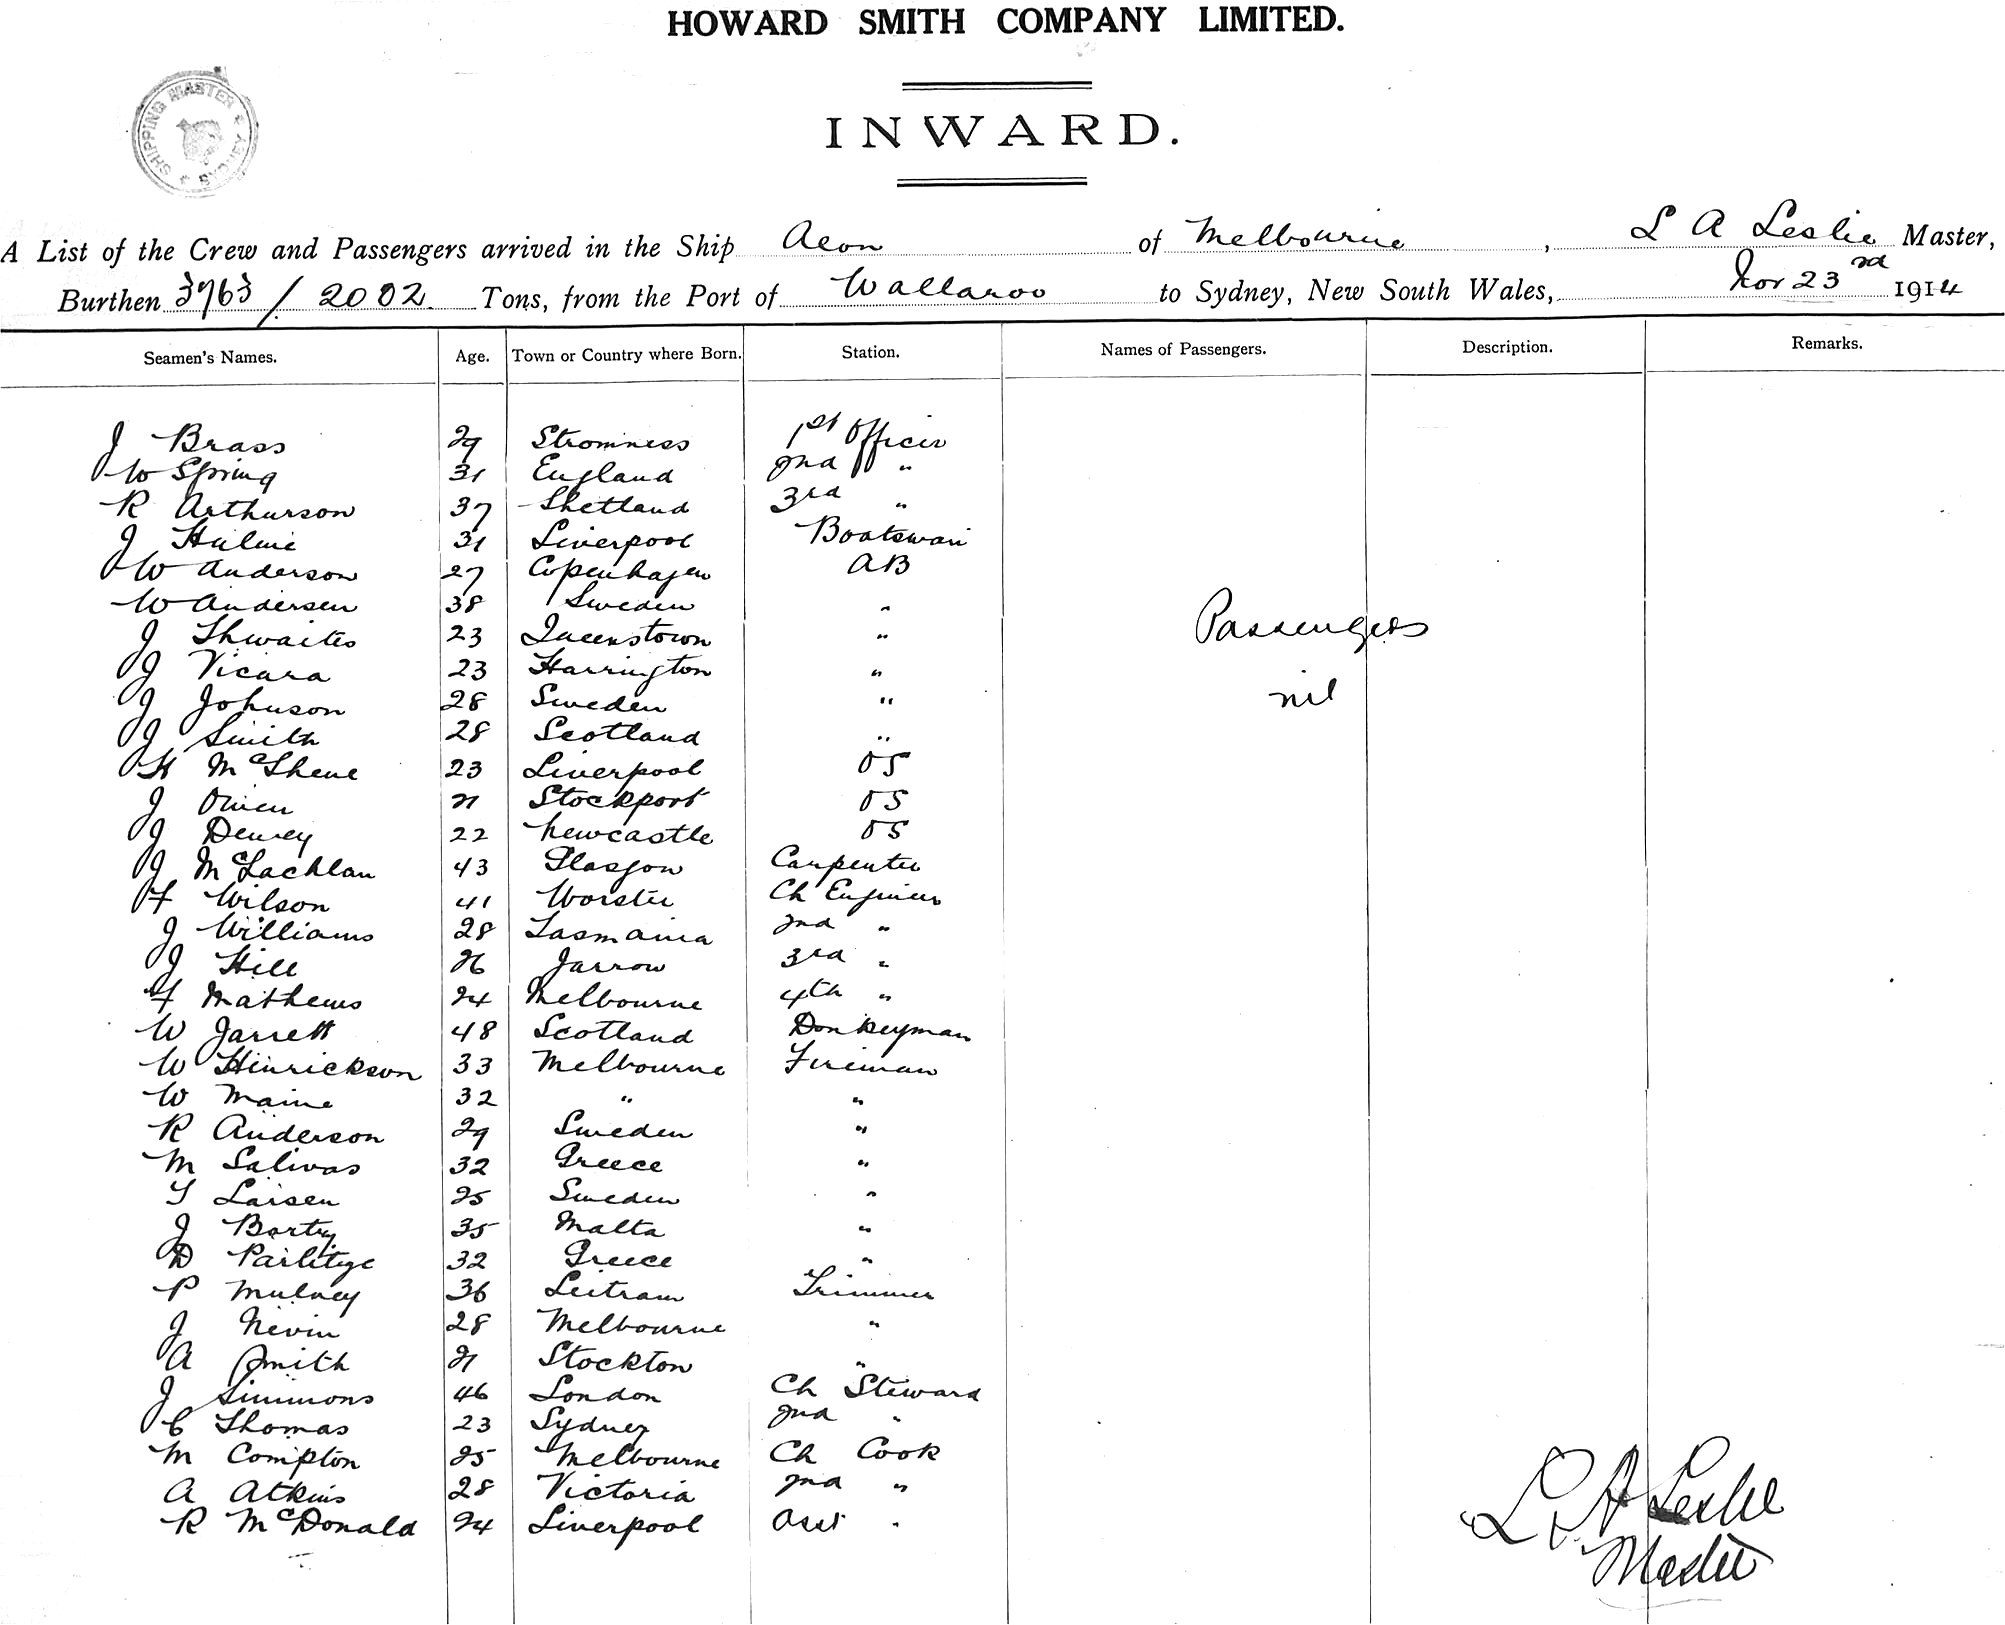 HOWARD SMITH COMPANY LIMITED.
SHIPPING MASTER SYDNEY
INWARD.
A List of the Crew and Passengers arrived in the Ship Aeon of Melbourne, L A Leslie Master,
Burthen 3763/2002 Tons, from the Port of Wallaroo to Sydney, New South Wales, Nov 23rd 1914
Seamen's Names. Age. Town or Country where Born. Station. Names of Passengers. Description. Remarks.
J Brass 29 Stromness 1st Officer
W Spring 31 England 2nd "
R Arthurson 37 Shetland 3rd "
J Hulme 31 Liverpool Boatswain
W Anderson 27 Copenhagen AB
W Andersen 38 Sweden "
J Thwaites 23 Queenstown " Passengers
J Vicara 23 Harrington "
J Johnson 28 Sweden " nil
J Smith 28 Scotland "
H McShene 23 Liverpool OS
J Owen 21 Stockport OS
J Dewey 22 Newcastle OS
J McLachlan 43 Glasgow Carpenter
F Wilson 41 Worster Ch Engineer
J Williams 28 Tasmania 2nd "
J Hill 26 Jarrow 3rd "
F Mathews 24 Melbourne 4th "
W Jarrett 48 Scotland Donkeyman
W Hinrickson 33 Melbourne Fireman
W Maine 32 " "
R Anderson 29 Sweden "
M Salivas 32 Greece "
T Larsen 25 Sweden "
J 35 Malta "
D 32 Greece "
P Mulvey 36 Leitram Trimmer
J Nevin 28 Melbourne "
A Smith 21 Stockton "
J Simmons 46 London Ch Steward
C Thomas 23 Sydney 2nd "
M Compton 25 Melbourne Ch Cook
A Atkins 28 Victoria 2nd "
R McDonald 24 Liverpool Asst "
L A Leslie
Master